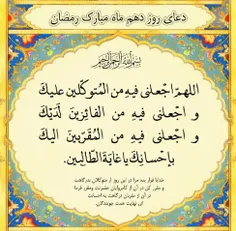 دعای روز دهم ماه مبارک رمضان
بِسْمِ اللهِ الرَّحْمنِ الرَّحیمِ
اللهمّ اجْعلنی فیهِ من المُتوکّلین علیکَ
و اجْعلنی فیهِ من الفائِزینَ لَدَیْکَ
و اجْعلنی فیهِ من المُقَرّبینَ الیکَ
بإحْسانِکَ یاغایَةَ الطّالِبین.
خدایا قرار بده مرا در این روز از متوکلان بدرگاهت
و مقرر کن در آن از کامروایان حضرتت ومقرر فرما
در آن از مقربان درگاهت به احسانت
ای نهایت همت جویندگان.